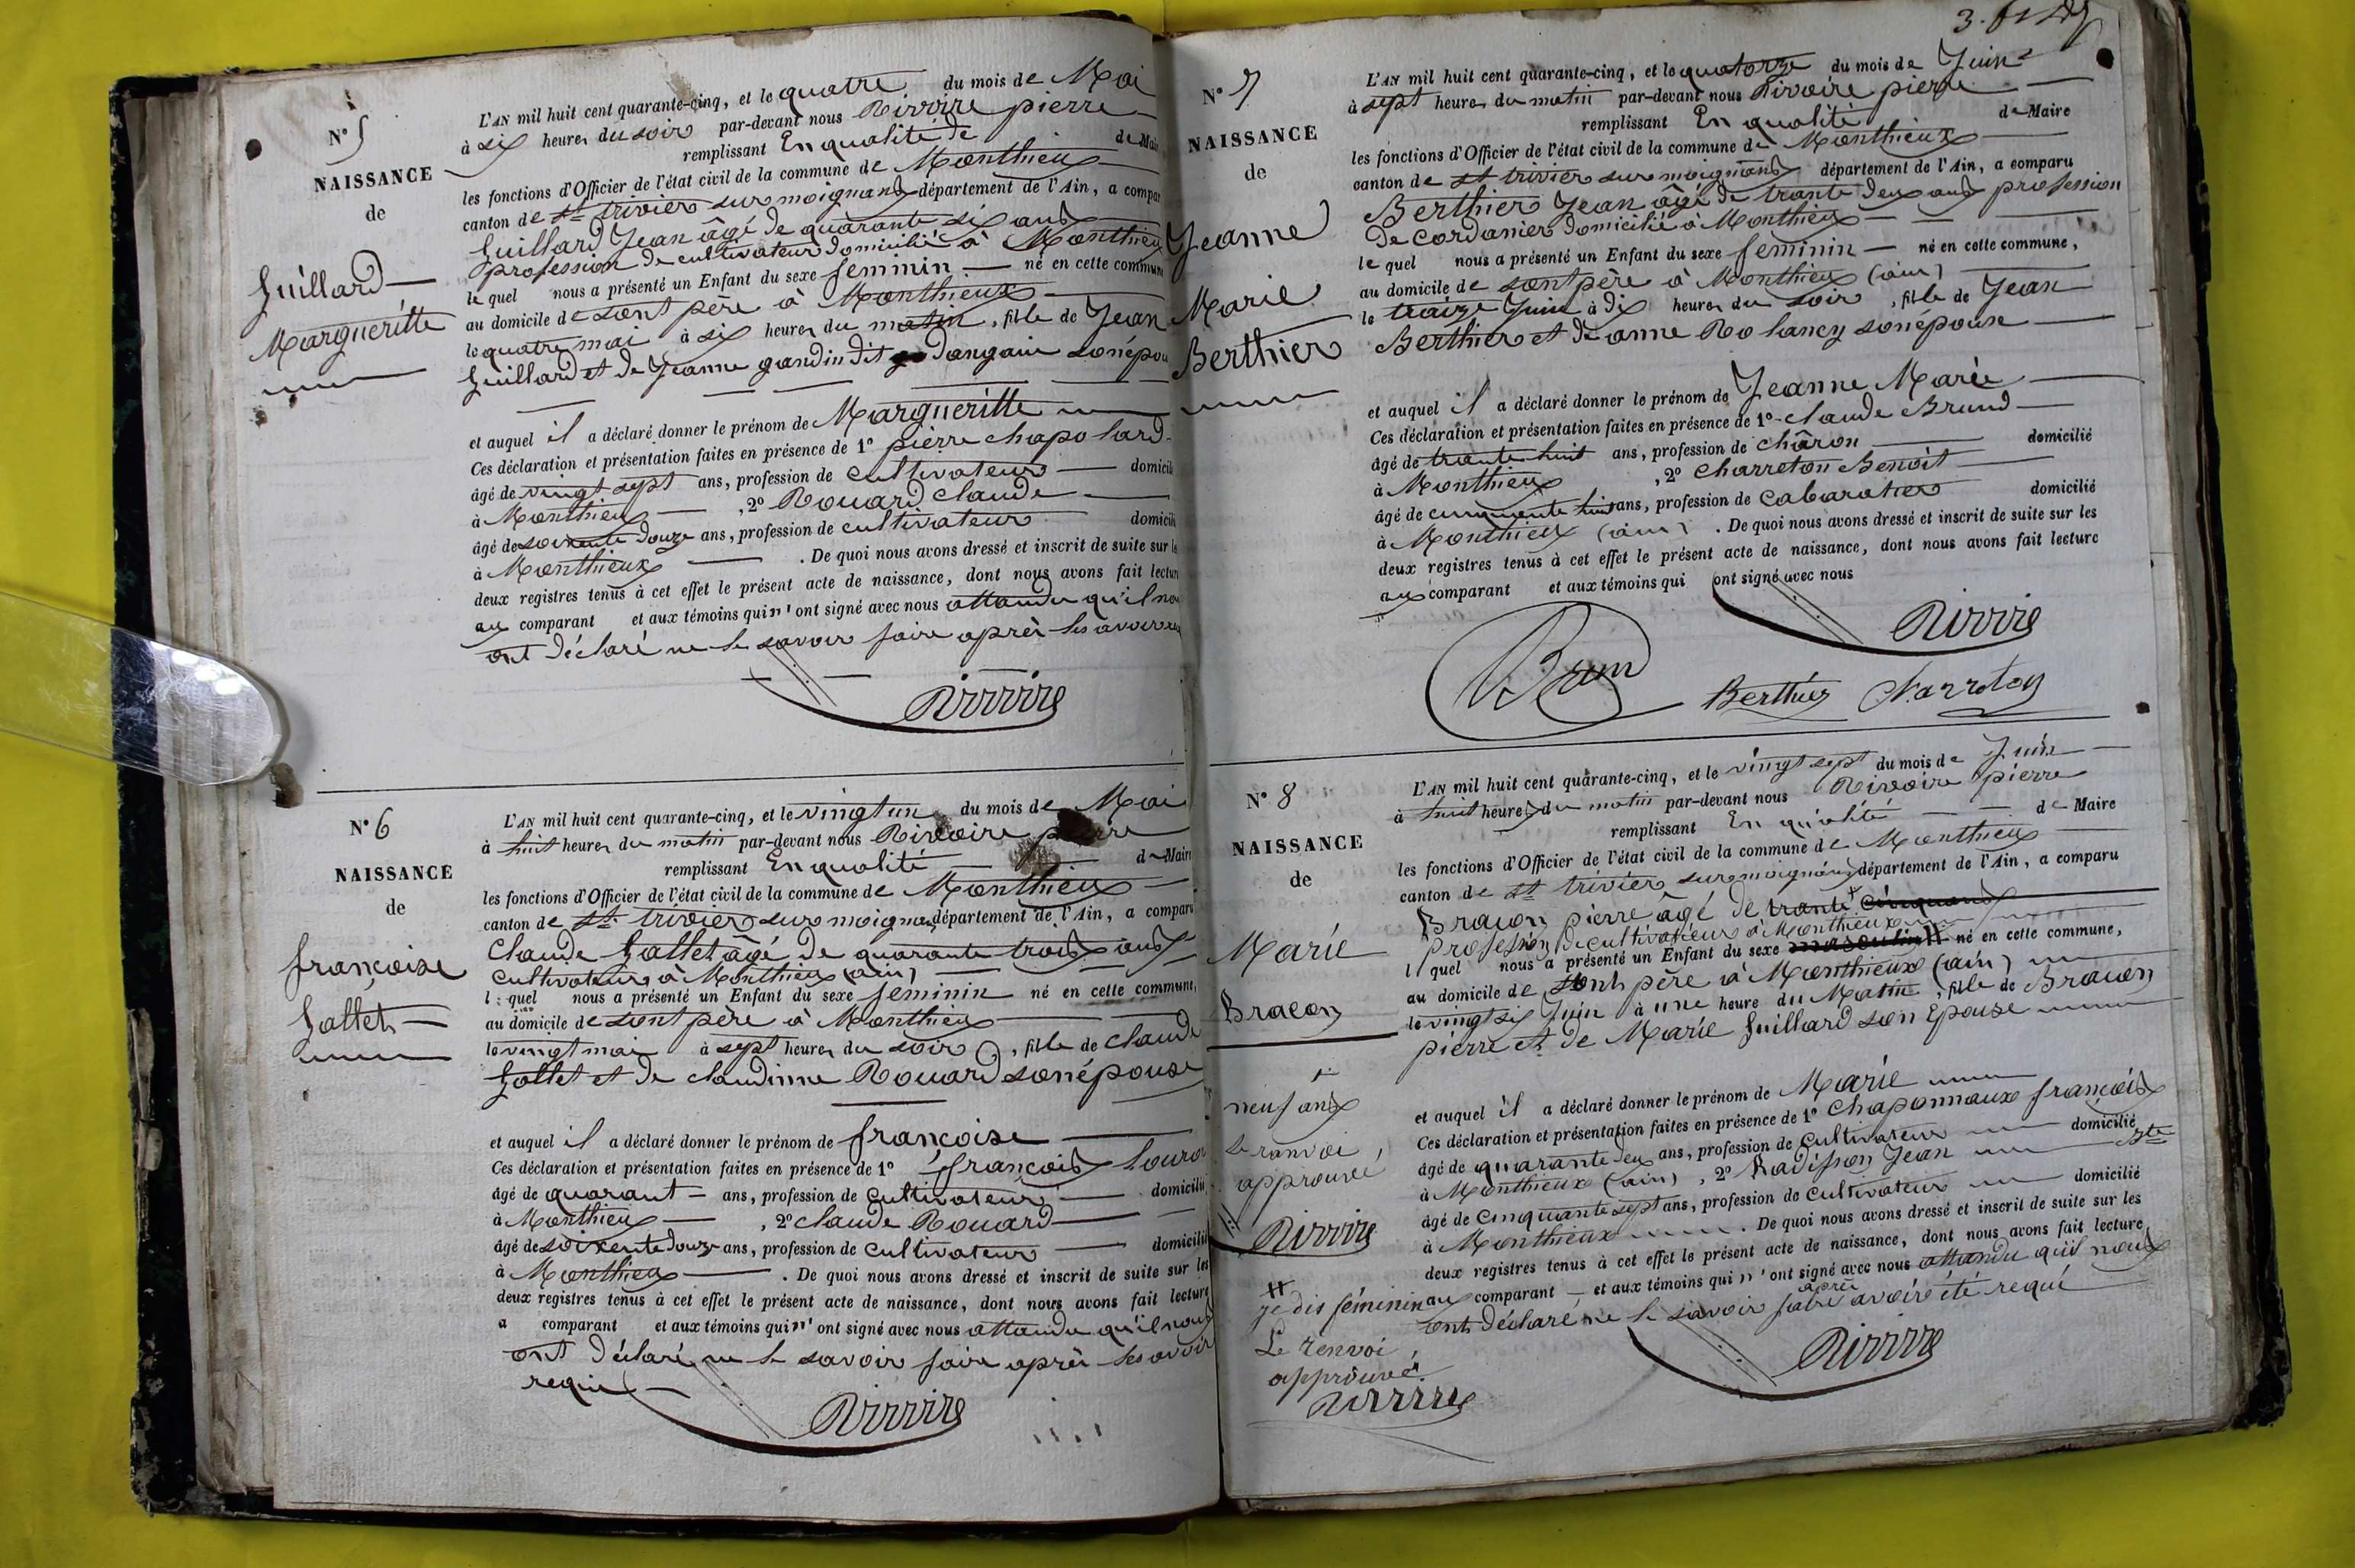 N° 5
NAISSANCE
de
Guillard
Marguerítte
L'AN mil huit cent quarante-cinq, et le quatre du mois de Mai
à six heures du soir par-devant nous Rivoire pierre
remplissant En qualité de de Mai
les fonctions d'Officier de l'état civil de la commune de Monthieux
canton de St trivier sur moignans département de l'Ain, a compar
Guillard Jean âgé de quarante six ans
profession de cultivateur domicilié à Monthieux
le quel nous a présenté un Enfant du sexe feminin né en cette commun
au domicile de sont père à Monthieux
le quatre mai à six heures du matin, fille de Jean
Guillard et de Jeanne gandin dit dangain son épou
et auquel il a déclaré donner le prénom de Marguerítte
Ces déclaration et présentation faites en présence de 1° pierre chapolard
âgé de vingt sept ans, profession de cultivateur domicili
à Monthieux, 2° Rouard claude
âgé de soixente douze ans, profession de cultivateur domicili
à Monthieux. De quoi nous avons dressé et inscrit de suite sur le
deux registres tenus à cet effet le présent acte de naissance, dont nous avons fait lectur
au comparant et aux témoins qui n'ont signé avec nous attandu qu'il nou
ont déclaré ne le savoir faire après les avoir
Rivoire
N° 6
NAISSANCE
de
françoise
Gallet
L'AN mil huit cent quarante-cinq, et le vingt un du mois de Mai
à huit heures du matin par-devant nous Rivoire pierre
remplissant En qualité de Maire
les fonctions d'Officier de l'état civil de la commune de Monthieux
canton de St trivier sur moignans département de l'Ain, a comparu
Claude Gallet âgé de quarante trois ans
cultivateur à Monthieux (ain)
le quel nous a présenté un Enfant du sexe féminin né en cette commune,
au domicile de sont père à Monthieux
le vingt mai à sept heures du soir, fille de claude
Gallet et de claudinne Rouard son épouse
et auquel il a déclaré donner le prénom de françoise
Ces déclaration et présentation faites en présence de 1° françois
âgé de quarant ans, profession de cultivateur domicilié
à Monthieux, 2° claude Rouard
âgé de soixente douze ans, profession de cultivateur domicilié
à Monthieux. De quoi nous avons dressé et inscrit de suite sur les
deux registres tenus à cet effet le présent acte de naissance, dont nous avons fait lecture
a comparant et aux témoins qui n'ont signé avec nous attandu qu'il nous
ont déclaré ne le savoir faire après les avoir
requi
Rivoire
N° 7
NAISSANCE
de
Jeanne
Marie
Berthier
L'AN mil huit cent quarante-cinq, et le quatorze du mois de Juin
à sept heures du matin par-devant nous Rivoire pierre
remplissant En qualité de Maire
les fonctions d'Officier de l'état civil de la commune de Monthieux
canton de St trivier sur moignans département de l'Ain, a comparu
Berthier Jean âgé de trante deux ans profession
De cordanier domicilié à Monthieux
le quel nous a présenté un Enfant du sexe feminin né en cette commune,
au domicile de sont père à Monthieux (ain)
le traize Juin à dix heures du soir, fille de Jean
Berthier et de anne Rolancy son épouse
et auquel il a déclaré donner le prénom de Jeanne Marie
Ces déclaration et présentation faites en présence de 1° claude Brund
âgé de trante huit ans, profession de châron domicilié
à Monthieux, 2° Charreton Benoit
âgé de cinquente huit ans, profession de cabaratier domicilié
à Monthieux (ain). De quoi nous avons dressé et inscrit de suite sur les
deux registres tenus à cet effet le présent acte de naissance, dont nous avons fait lecture
au comparant et aux témoins qui ont signé avec nous
Rivoire
Berthier Charreton
N° 8
NAISSANCE
de
Marie
Bracon
neuf ans
Le ranvoi
approuvé
Rivoire
je dis féminin
Le renvoi
approuvé
Rivoire
L'AN mil huit cent quarante-cinq, et le vingt sept du mois de Juin
à huit heures du matin par-devant nous Rivoire pierre
remplissant En qualité de Maire
les fonctions d'Officier de l'état civil de la commune de Monthieux
canton de St trivier sur moignans département de l'Ain, a comparu
Bracon pierre âgé de trante
Profession de cultivateur à Monthieux
l quel nous a présenté un Enfant du sexe masculin né en cette commune,
au domicile de sont père à Monthieux (ain)
le vingt six Juin à une heure du Matin, fille de Bracon
pierre et de Marie Guillard son Epouse
et auquel il a déclaré donner le prénom de Marie
Ces déclaration et présentation faites en présence de 1° Chaponnaux françois
âgé de quarante deux ans, profession de Cultivateur domicilié
à Monthieux (ain), 2° Radisson Jean Bte
âgé de Cinquante sept ans, profession de Cultivateur domicilié
à Monthieux. De quoi nous avons dressé et inscrit de suite sur les
deux registres tenus à cet effet le présent acte de naissance, dont nous avons fait lecture
au comparant et aux témoins qui n'ont signé avec nous attandu qu'il nous
ont déclaré ne le savoir faire après avoir été requi
Rivoire